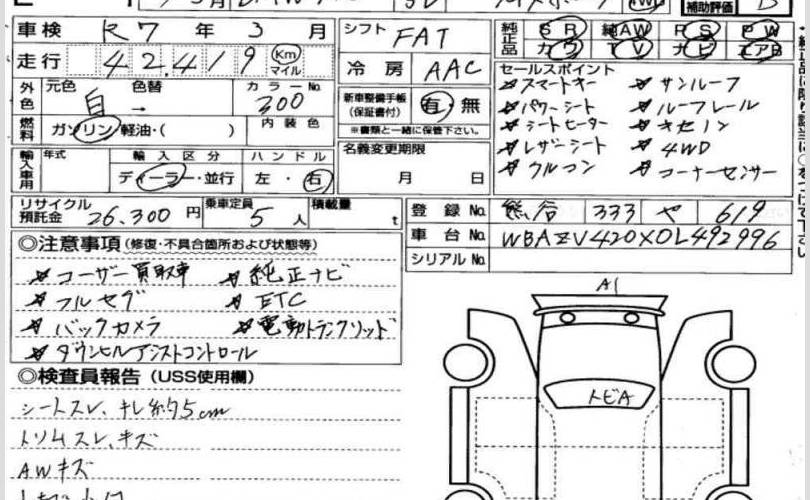 補助評価 B
車検 R7年 3月 シフト FAT 純正品 SR 純AW PS PW
走行 42,419 Km マイル 冷房 AAC カワ TV ナビ エアB
外色 元色 白 色替 → カラーNo. 300 新車整備手帳(保証書付) 有・無 ※書類と一緒に保管下さい。
燃料 ガソリン 軽油・( ) 内装色
輸入車用 年式 輸入区分 ディーラー・並行 ハンドル 左・右 名義変更期限 月 日
セールスポイント
スマートキー サンルーフ
パワーシート ルーフレール
シートヒーター キセノン
レザーシート 4WD
クルコン コーナーセンサー
リサイクル預託金 26,300円 乗車定員 5人 積載量 t
登録No. 熊谷 333 や 619
車台No. WBAZV420X0L492996
シリアルNo.
◎注意事項(修復・不具合箇所および状態等)
ユーザー買取車 純正ナビ
フルセグ ETC
バックカメラ 電動トランクリッド
ダウンヒルアシストコントロール
◎検査員報告(USS使用欄)
シートスレ、キレ約5cm
トリムスレ、キズ
AWキズ
A1
トビA